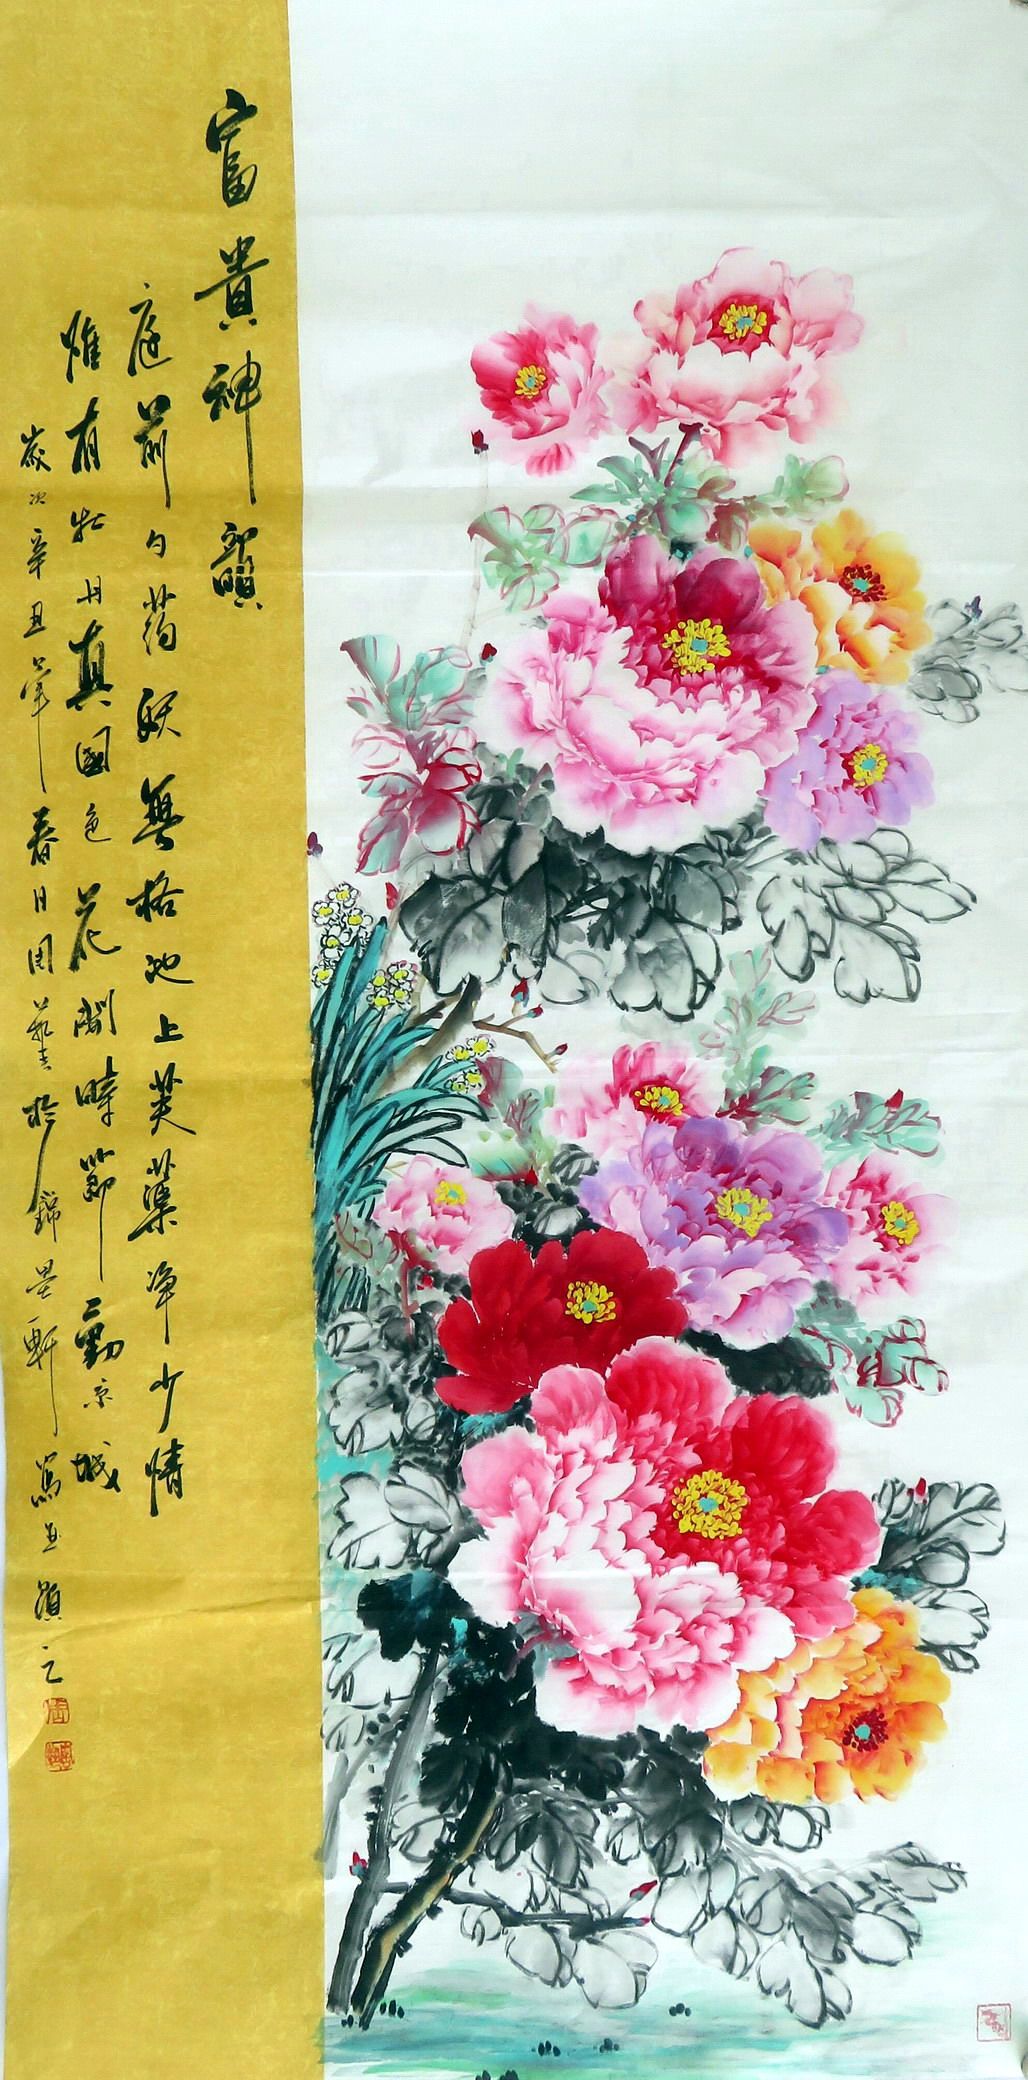 富貴神韻
庭前勺葯妖無格池上芙蕖净少情
唯有牡丹真國色花開時節動京城
歲次辛丑年春日周藝文於錦墨軒寫並題之